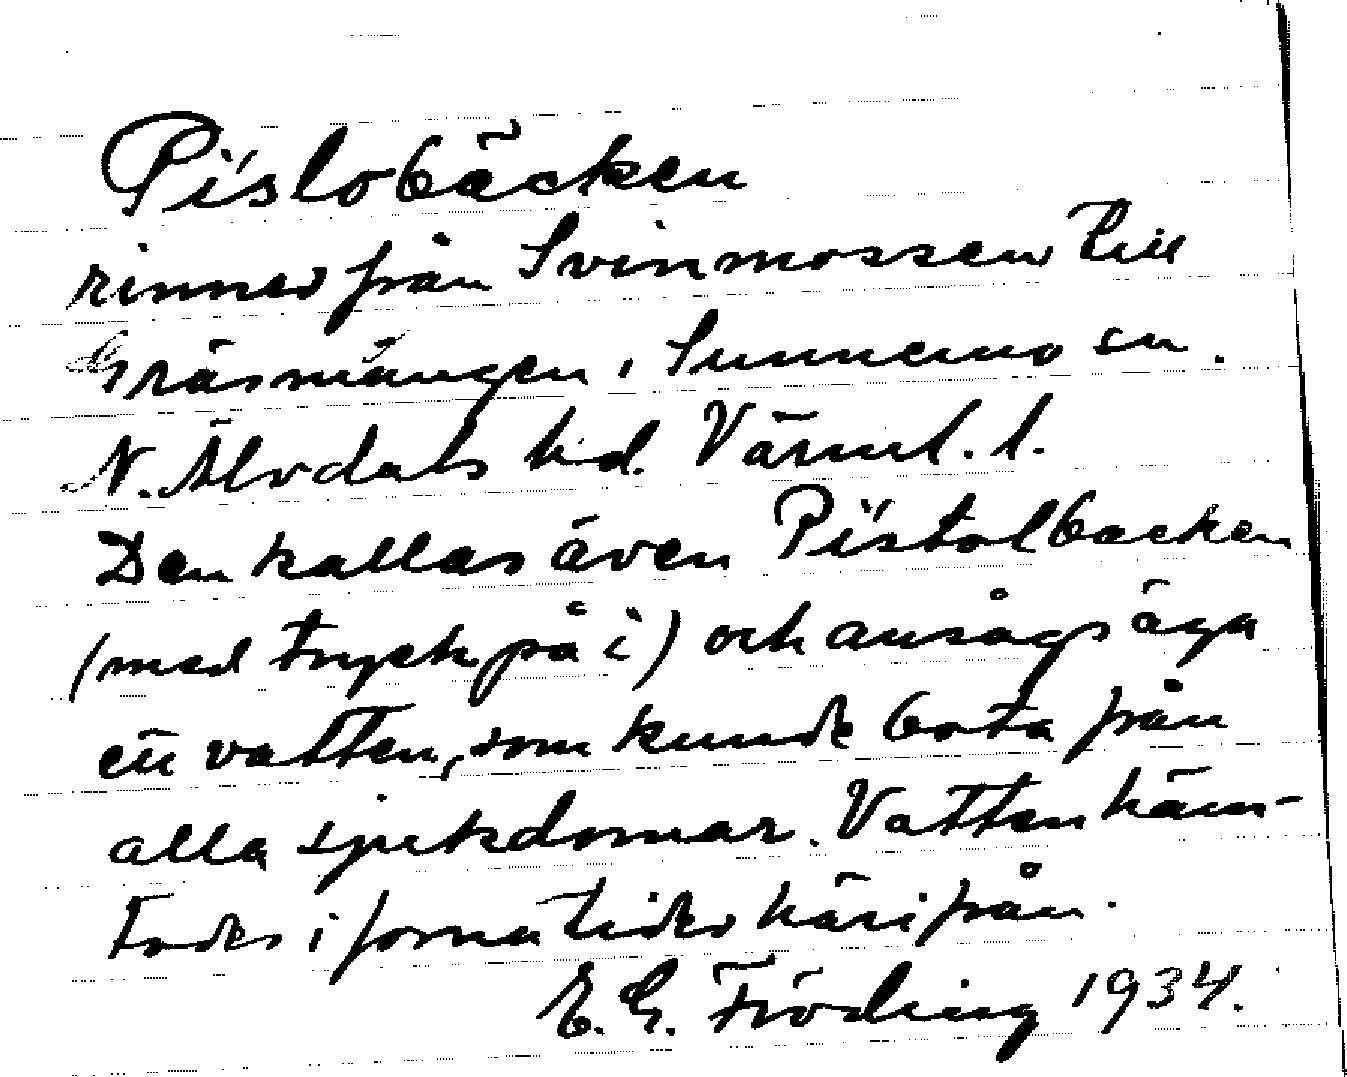 Píslobäcken
rinner från Svinmossen till
Gräsmången, Sunnemo sn.
N. Älvdals hd. Värml. l.
Den kallas även Pístolbäcken
(med tryck på i) och ansågs äga
ett vatten, som kunde bota från
alla sjukdomar. Vatten häm-
tades i forna tider härifrån.
E. G. Fröding 1934.